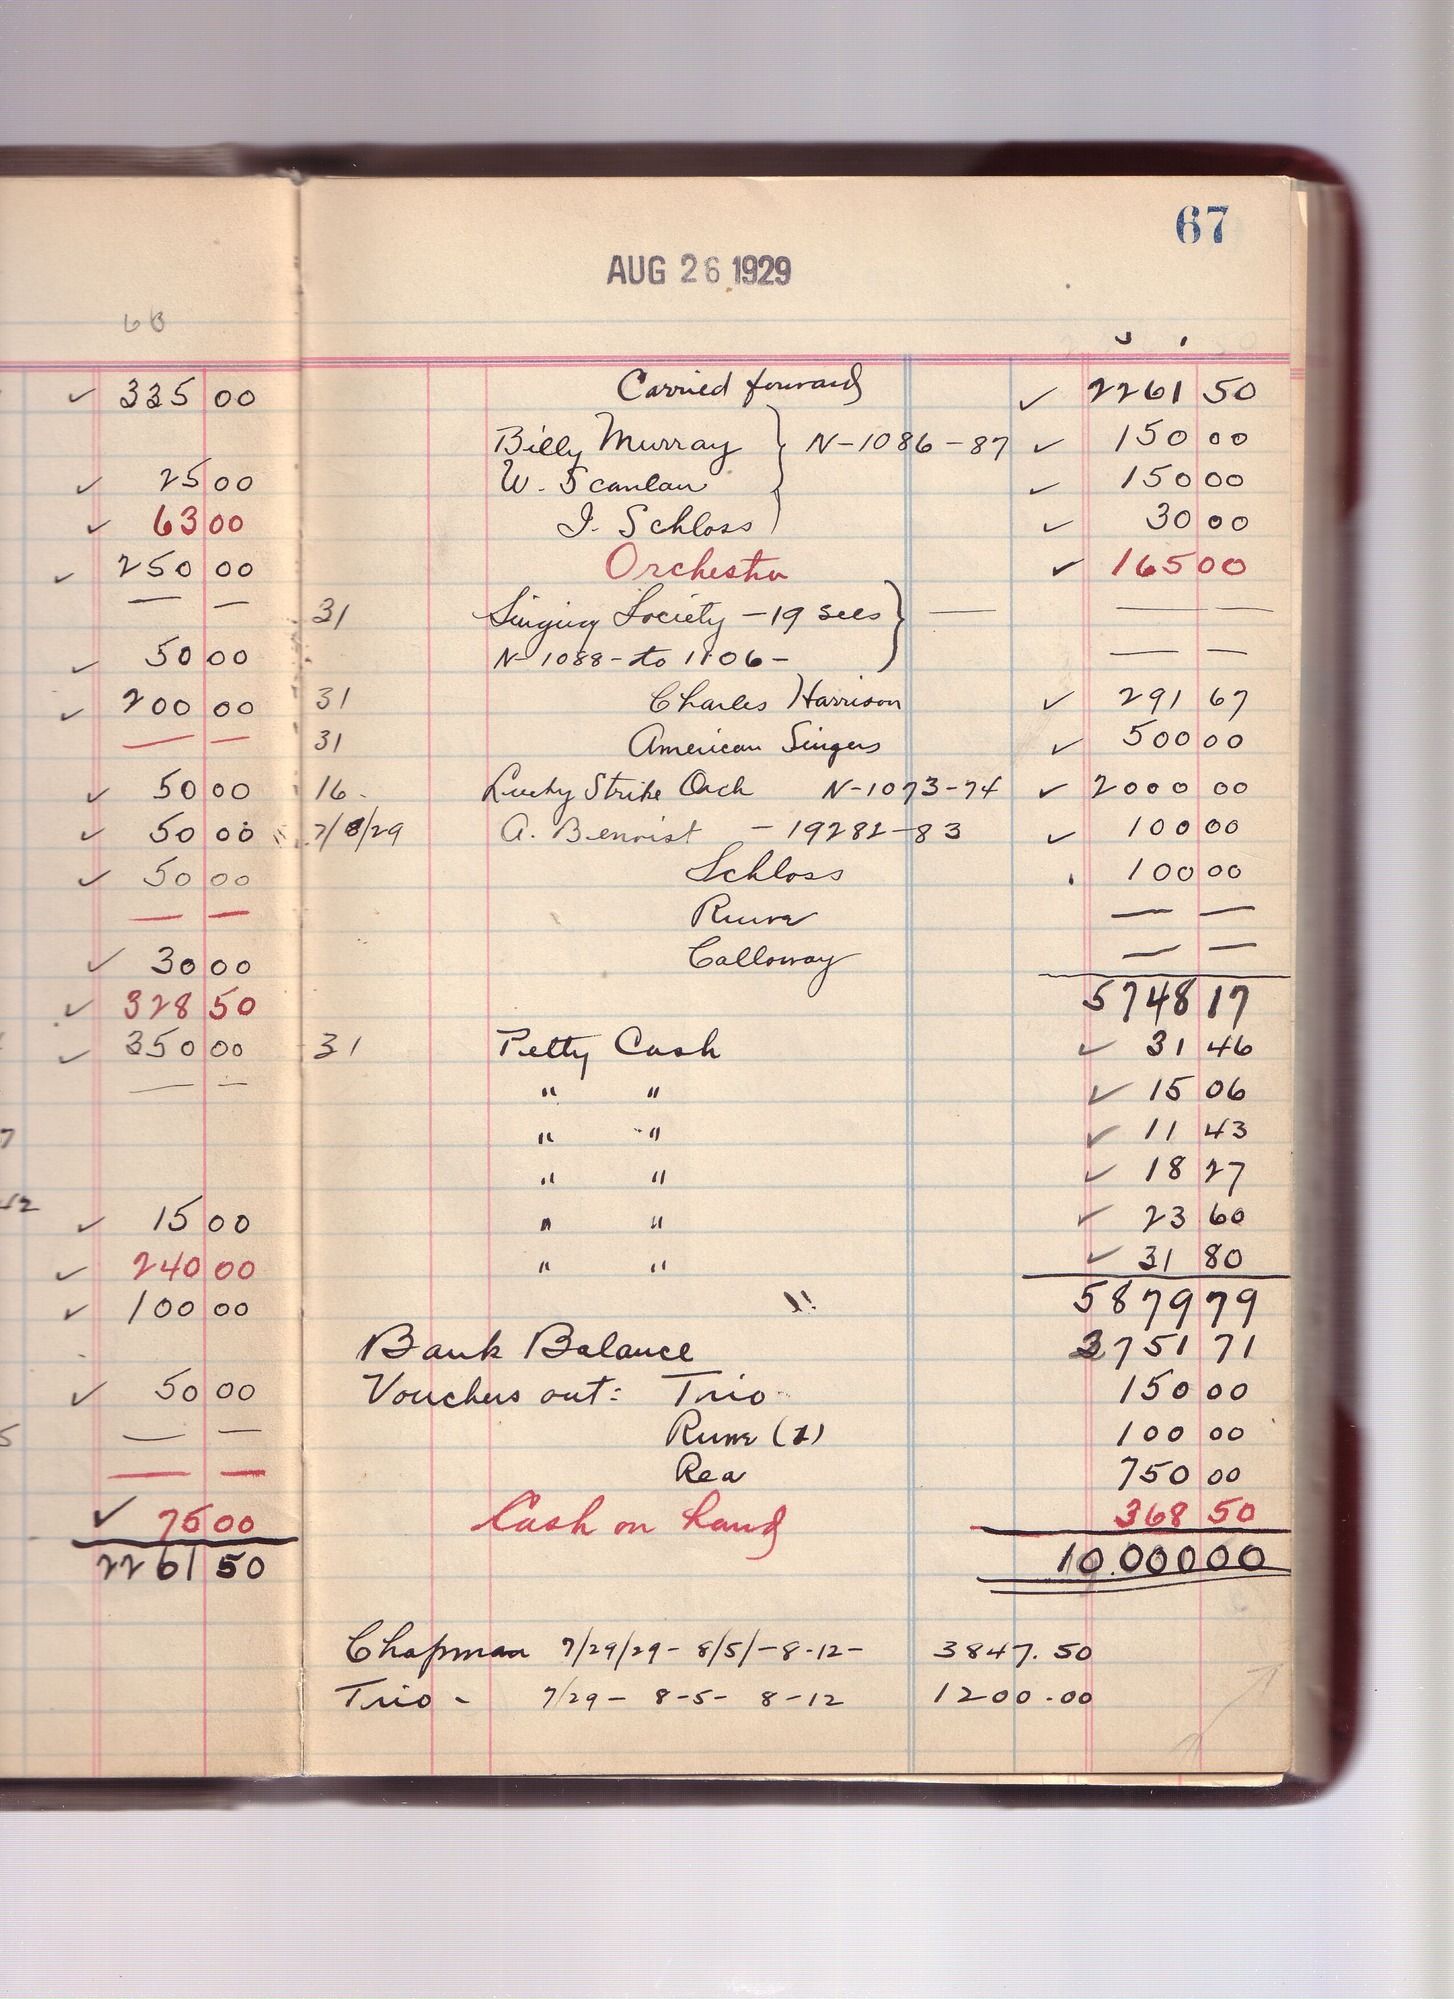 67
AUG 26 1929
335 00
25 00
63 00
250 00
— —
50 00
200 00
— —
50 00
50 00
50 00
— —
30 00
328 50
350 00
— —
7
15 00
240 00
100 00
50 00
— —
— —
75 00
2261 50
Carried forward ✓ 2261 50
Billy Murray } N-1086-87 ✓ 150 00
W. Scanlan ✓ 150 00
I. Schloss ✓ 30 00
Orchestra ✓ 165 00
31 Singing Society - 19 sels } — — —
N-1088- to 1106- — —
31 Charles Harrison ✓ 291 67
31 American Singers ✓ 500 00
16- Lucky Strike Orch N-1073-74 ✓ 2000 00
7/8/29 A. Benoist - 19282-83 ✓ 100 00
Schloss 100 00
— —
Calloway — —
5748 17
31 Petty Cash ✓ 31 46
" " ✓ 15 06
" " ✓ 11 43
" " ✓ 18 27
" " ✓ 23 60
" " ✓ 31 80
5879 79
Bank Balance 2751 71
Vouchers out: Trio 150 00
100 00
Rea 750 00
Cash on hand 368 50
10.000 00
Chapman 7/29/29- 8/5/-8-12- 3847.50
Trio - 7/29- 8-5- 8-12 1200.00